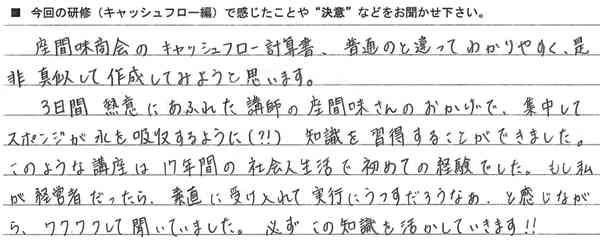 ■ 今回の研修（キャッシュフロー編）で感じたことや“決意”などをお聞かせ下さい。
座間味商会のキャッシュフロー計算書、普通のと違ってわかりやすく、是
非真似して作成してみようと思います。
3日間 熱意にあふれた講師の座間味さんのおかげで、集中して
スポンジが水を吸収するように(?!) 知識を習得することができました。
このような講座は17年間の社会人生活で初めての経験でした。もし私
が経営者だったら、素直に受け入れて実行にうつすだろうなぁ、と感じなが
ら、ワクワクして聞いていました。必ずこの知識を活かしていきます!!